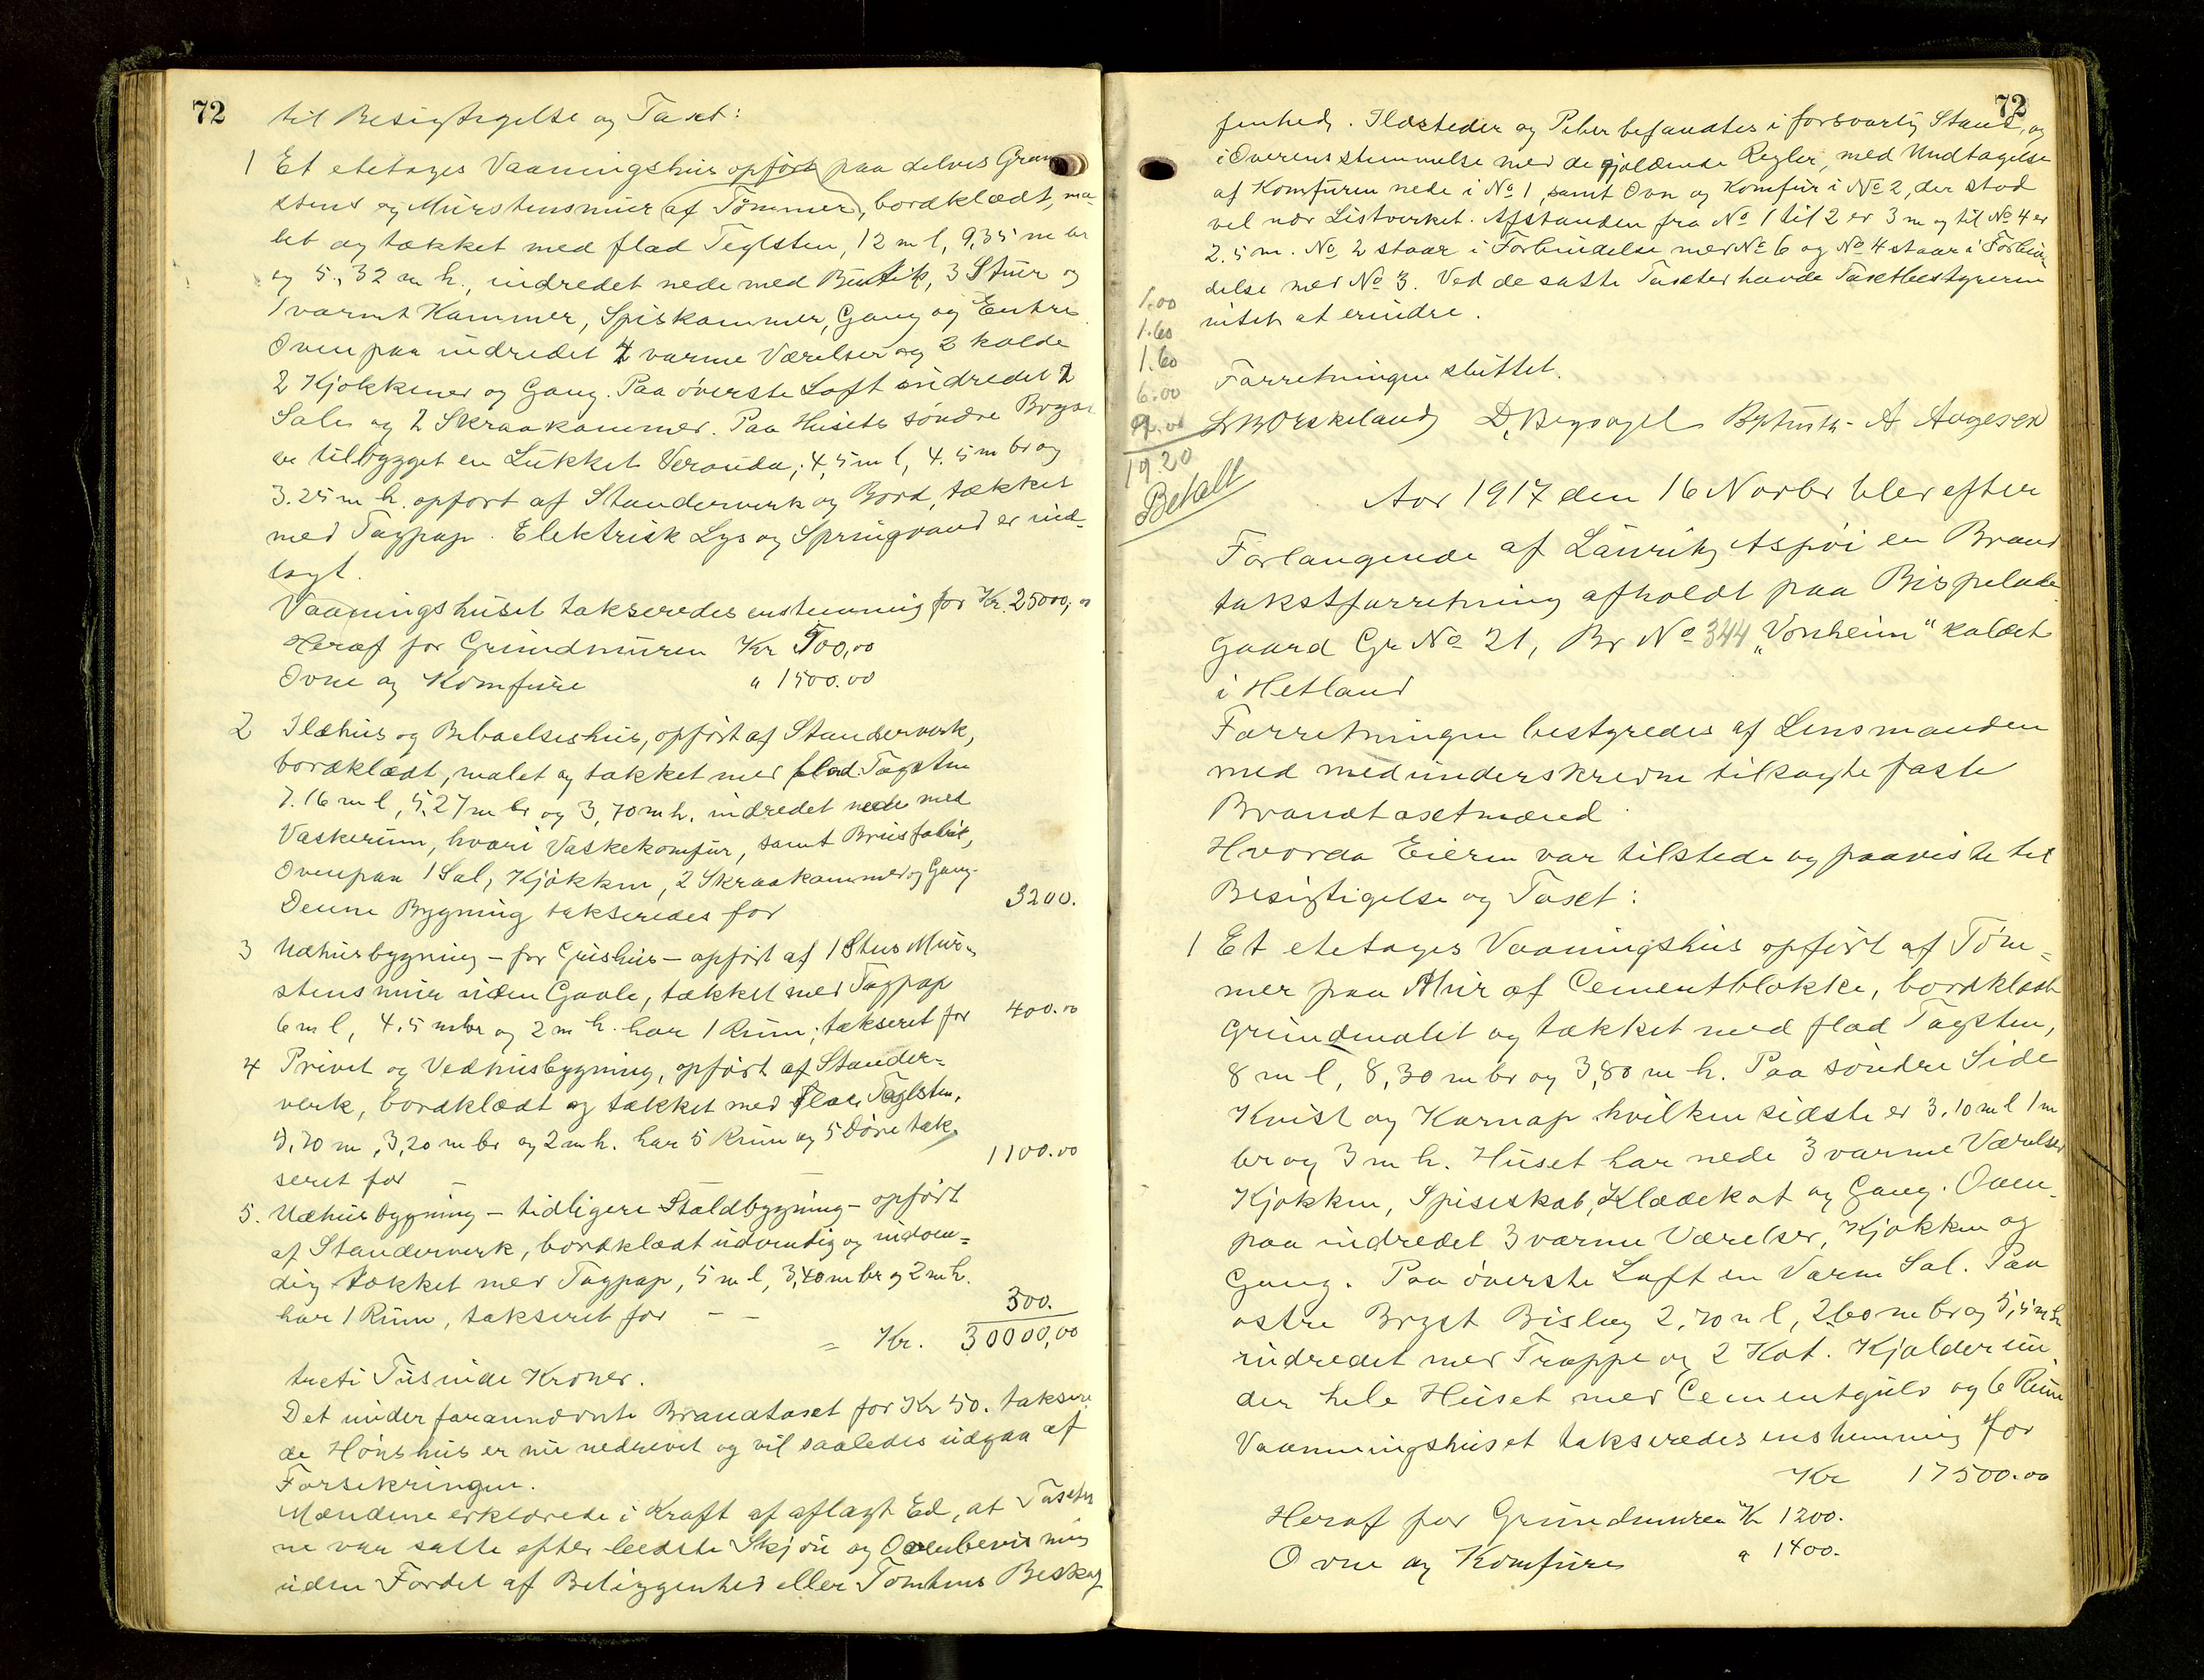 72
til Besigtigelse og Taxt:
1 Et etetages Vaaningshus opført paa delvis Graa
stens og Murstensmur (af Tømmer), bordklædt, ma-
let og tækket med flad Teglsten, 12 m l, 9,35 m br
og 5,32 m h., indredet nede med Butik, 3 Stuer og
1 varmt Kammer, Spiskammer, Gang og Entre.
Ovenpaa indredet 4 varme Værelser og 2 kolde
2 Kjøkkener og Gang. Paa øverste Loft indredet 2
Sale og 2 Skraakammer. Paa Husets søndre Bryst
er tilbygget en Lukket Veranda, 4,5 m l, 4.5 m br og
3.25 m h. opført af Standerverk og Bord, tækket
med Tagpap. Elektrisk Lys og Springvand er ind-
lagt.
Vaaningshuset takseredes enstemmig for Kr. 25000,00
Heraf for Grundmuren Kr 500,00
Ovne og Komfure " 1500.00
2 Ildhus og Beboelseshus, opført af Standerverk,
bordklædt, malet og takket med flad Tagsten
7.16 m l, 5,27 m br og 3,70 m h. indredet nede med
Vaskerum, hvori Vaskekomfur, samt Brusfabrik,
Ovenpaa 1 Sal, Kjøkken, 2 Skraakammer og Gang.
Denne Bygning takseredes for 3200.
3 Udhusbygning - for Grishus - opført af 1 Stens Mur-
stensmur uden Gavle, tækket med Tagpap
6 m l, 4.5 m br og 2 m h. har 1 Rum; takseret for 400.00
4 Privet og Vedhusbygning, opført af Stander-
verk, bordklædt og tækket med flad Teglsten,
5,70 m, 3,20 m br og 2 m h. har 5 Rum og 5 Døre tak-
seret for — 1100.00
5. Udhusbygning - tidligere Staldbygning - opført
af Standerverk, bordklædt udvendig og indven-
dig tækket med Tagpap, 5 m l, 3,40 m br og 2 m h.
har 1 Rum, takseret for — — 300.
= Kr. 30000,00
treti Tusinde Kroner.
Det under forannævnte Brandtaxt for Kr 50. takser-
de Hønshus er nu nedrevet og vil saaledes udgaa af
Forsikringen.
Mændene erklærede i Kraft af aflagt Ed, at Taxter
ne var satte efter bedste Skjøn og Overbevisning
uden Fordel af Beliggenhed eller Tomtens Beskaf
72
fenhed. Ildsteder og Piber befandtes i forsvarlig Stand, og
i Overensstemmelse med de gjældende Regler, med Undtagelse
af Komfuren nede i No 1, samt Ovn og Komfur i No 2, der stod
vel nær Listverket. Afstanden fra No 1 til 2 er 3 m og til No 4 er
2.5 m. No 2 staar i Forbindelse med No 6 og No 4 staar i Forbin
delse med No 3. Ved de satte Taxter havde Taxtbestyreren
intet at erindre.
1.00
1.60
1.60
6.00
9.00
19.20
Betalt
Forretningen sluttet.
A Aagesen
Aar 1917 den 16 Novbr blev efter
Forlangende af Lauritz Aspøi en Brand
takstforretning afholdt paa Bispelade
gaard Gr No 21, Br No 344 „Vonheim" kaldet
i Hetland
Forretningen bestyredes af Lensmanden
med medunderskrevne tilsagte faste
Brandtaxtmænd.
Hvorda Eieren var tilstede og paaviste til
Besigtigelse og Taxt:
1 Et etetages Vaaningshus opført af Tøm-
mer paa Mur af Cementblokke, bordklædt
grundmalet og tækket med flad Tagsten,
8 m l, 8,30 m br og 3,80 m h. Paa søndre Side
Kvist og Karnap hvilken sidste er 3,10 m l 1 m
br og 3 m h. Huset har nede 3 varme Værelser
Kjøkken, Spiseskab, Klædekot og Gang. Oven-
paa indredet 3 varme Værelser, Kjøkken og
Gang. Paa øverste Loft en Varm Sal. Paa
østre Bryst Bislag 2,70 m l, 2,60 m br og 5,5 m h
indredet med Trappe og 2 Kot. Kjælder un
der hele Huset med Cementgulv og 6 Rum
Vaanningshuset takseredes enstemmig for
Kr 17500.00
Heraf for Grundmuren Kr 1200.
Ovne og Komfure " 1400.